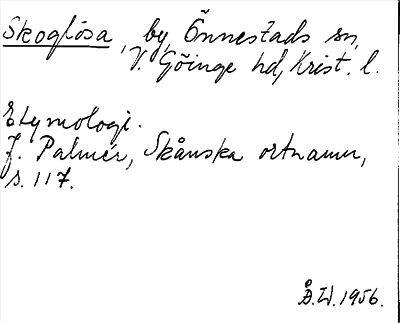 Skoglösa, by, Önnestads sn,
V. Göinge hd, Krist. l.
Etymologi.
J. Palmér, Skånska ortnamn,
s. 117.
Å.W. 1956.